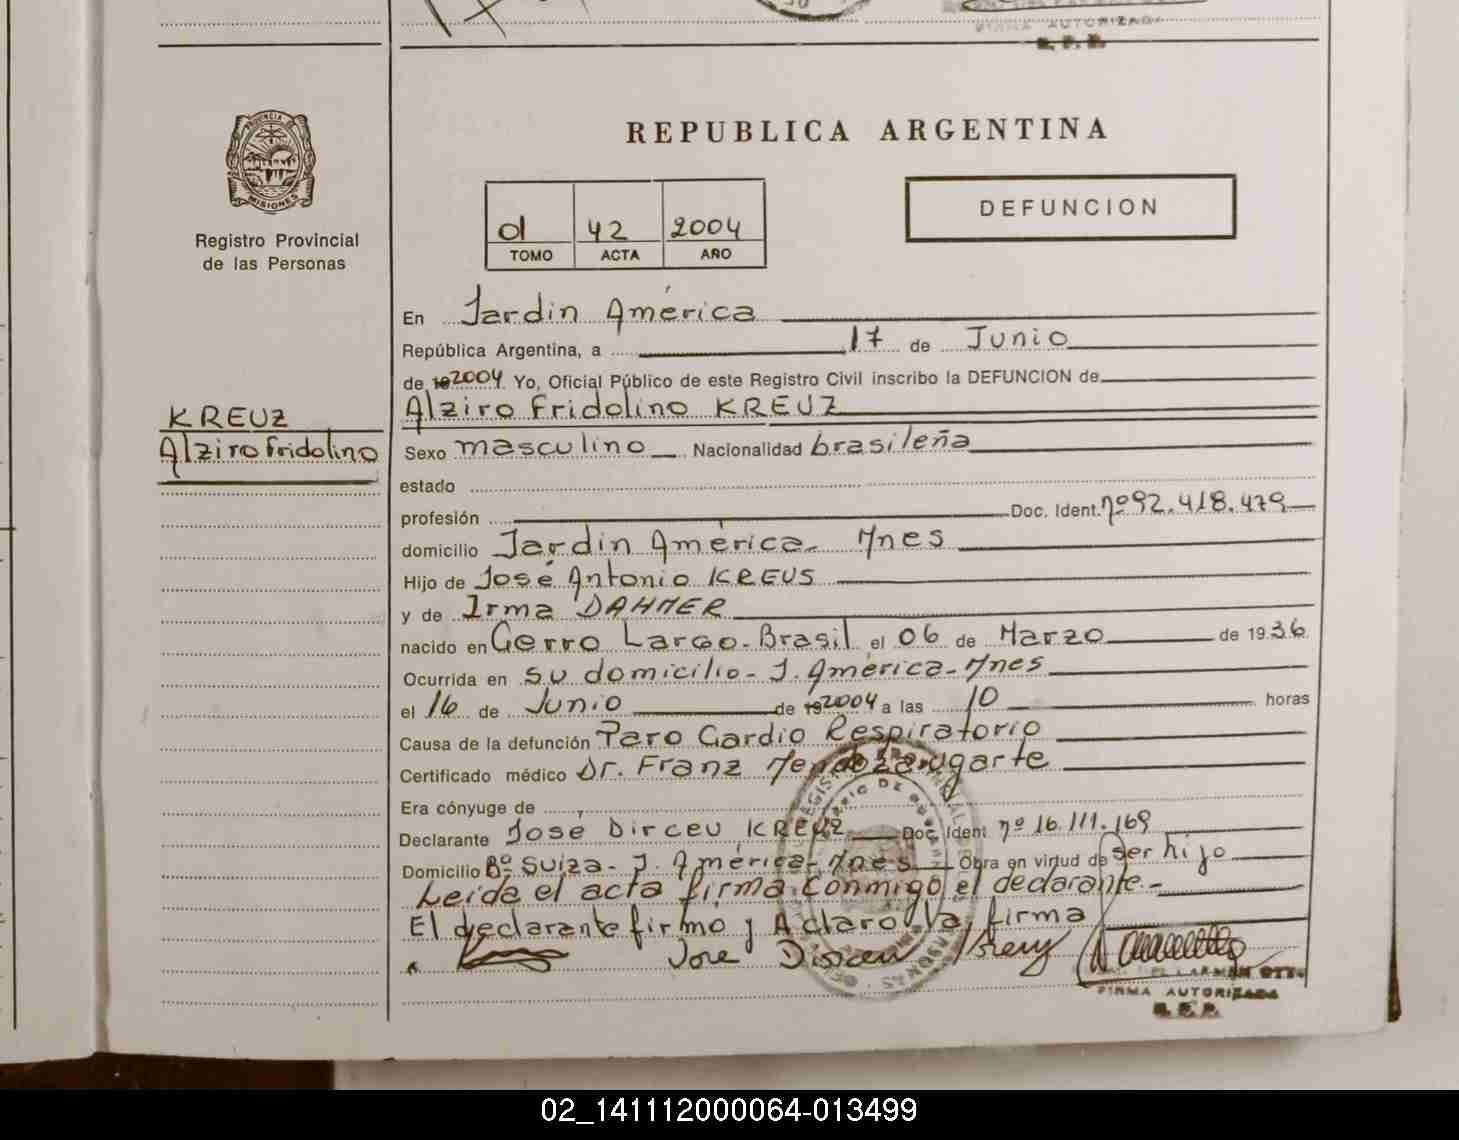 FIRMA AUTORIZADA
R. P. P.
PROVINCIA DE
MISIONES
Registro Provincial
de las Personas
KREUZ
Alziro Fridolino
REPUBLICA ARGENTINA
01 42 2004
TOMO ACTA AÑO
DEFUNCION
En Jardin América
República Argentina, a 17 de Junio
de 192004 Yo, Oficial Público de este Registro Civil inscribo la DEFUNCION de
Alziro Fridolino KREUZ
Sexo masculino Nacionalidad brasileña
estado
profesión Doc. Ident. nº 92.418.479
domicilio Jardin América - Mnes
Hijo de José Antonio KREUS
y de Irma DAHMER
nacido en Cerro Largo - Brasil el 06 de Marzo de 1936
Ocurrida en su domicilio - J. América - Mnes
el 16 de Junio de 192004 a las 10 horas
Causa de la defunción Paro Cardio Respiratorio
Certificado médico Dr. Franz Mendoza ugarte
Era cónyuge de
Declarante Jose Dirceu KREUZ Doc. Ident nº 16.111.169
Domicilio Bº Suiza - J. América - Mnes Obra en virtud de ser hijo
Leída el acta firma conmigo el declarante.-
El declarante firmó y Aclaro la firma
Jose Dirceu Kreuz
FIRMA AUTORIZADA
02_141112000064-013499